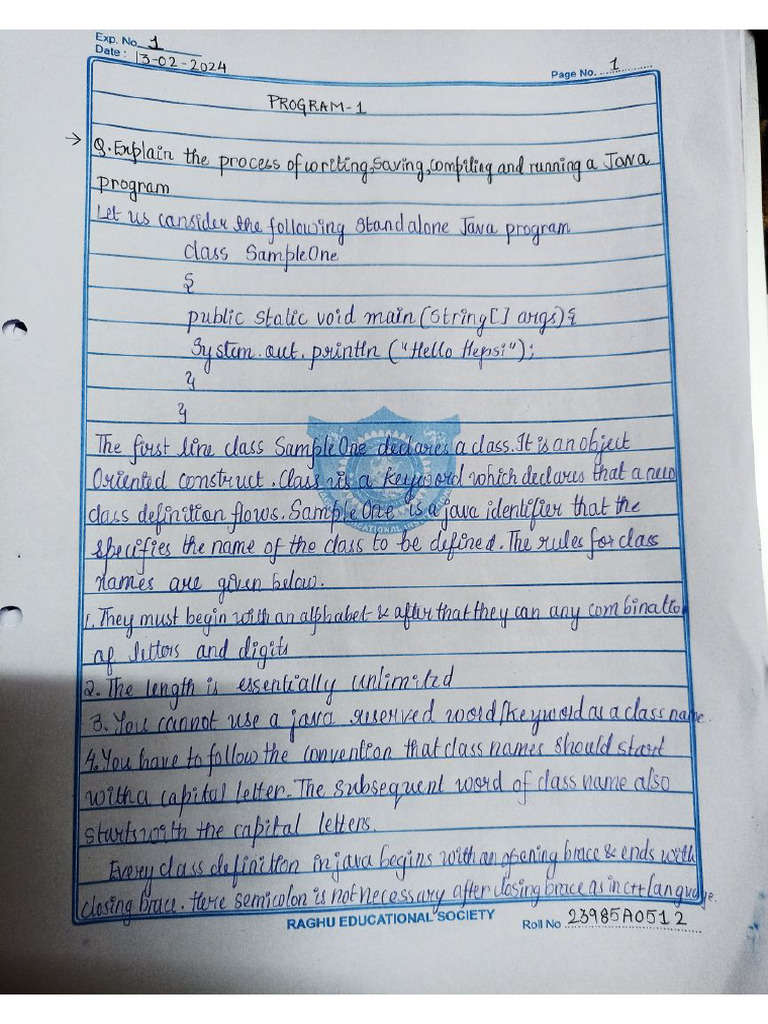 Exp. No. 1
Date : 13-02-2024
Page No. 1
PROGRAM-1
→ Q. Explain the process of writing, saving, compiling and running a Java
program
Let us consider the following standalone Java program
class SampleOne
{
public static void main (String[] args){
System.out.println ("Hello Hepsi");
}
}
The first line class SampleOne declares a class. It is an object
Oriented construct. Class is a keyword which declares that a new
class definition flows. SampleOne is a java identifier that the
specifies the name of the class to be defined. The rules for class
names are given below.
1. They must begin with an alphabet & after that they can any combinatio
of letters and digits
2. The length is essentially unlimited
3. You cannot use a java reserved word/keyword as a class name.
4. You have to follow the convention that class names should start
with a capital letter. The subsequent word of class name also
starts with the capital letters.
Every class definition in java begins with an opening brace & ends with
closing brace. Here semicolon is not necessary after closing brace as in c++ language.
RAGHU EDUCATIONAL SOCIETY
Roll No 23985A0512